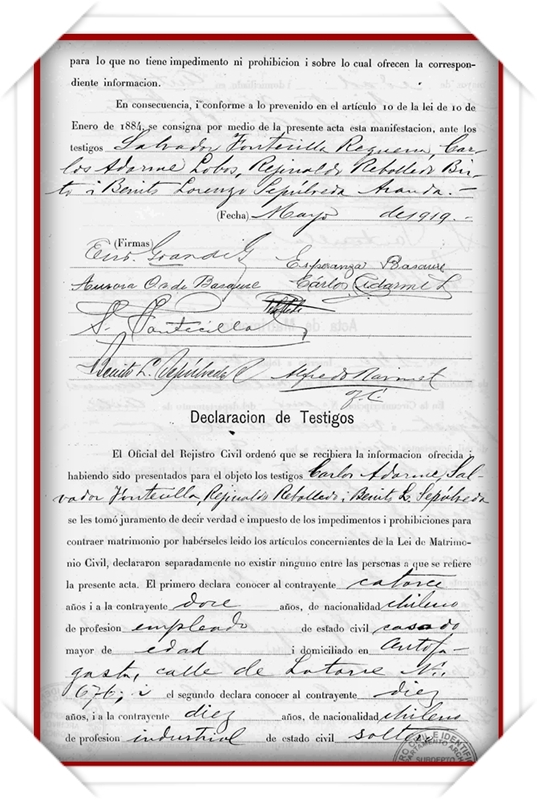 para lo que no tiene impedimento ni prohibicion i sobre lo cual ofrecen la correspon-
diente informacion.
En consecuencia, i conforme a lo prevenido en el artículo 10 de la lei de 10 de
Enero de 1884, se consigna por medio de la presente acta esta manifestacion, ante los
testigos Salvador Fontecilla Requena, Car-
los Adarme Lobos, Rejinaldo Rebolledo Bri-
to i Benito Lorenzo Sepúlveda Aranda.—
(Fecha) Mayo de 1919.—
(Firmas)
Esperanza Bascuré
Aurora O. de Bascuré Cárlos Adarme L
S. Fontecilla
Benito L. Sepúlveda Alfredo
Declaracion de Testigos
El Oficial del Registro Civil ordenó que se recibiera la informacion ofrecida i
habiendo sido presentados para el objeto los testigos Carlos Adarme, Sal-
vador Fontecilla, Rejinaldo Rebolledo i Benito L. Sepúlveda
se les tomó juramento de decir verdad e impuesto de los impedimentos i prohibiciones para
contraer matrimonio por habérseles leido los artículos concernientes de la Lei de Matrimo-
nio Civil, declararon separadamente no existir ninguno entre las personas a que se refiere
la presente acta. El primero declara conocer al contrayente catorce
años i a la contrayente doce años, de nacionalidad chileno
de profesion empleado de estado civil casado
mayor de edad i domiciliado en Antofa-
gasta, calle de Latorre No.
676; i el segundo declara conocer al contrayente diez
años, i a la contrayente diez años, de nacionalidad chileno
de profesion industrial de estado civil soltero